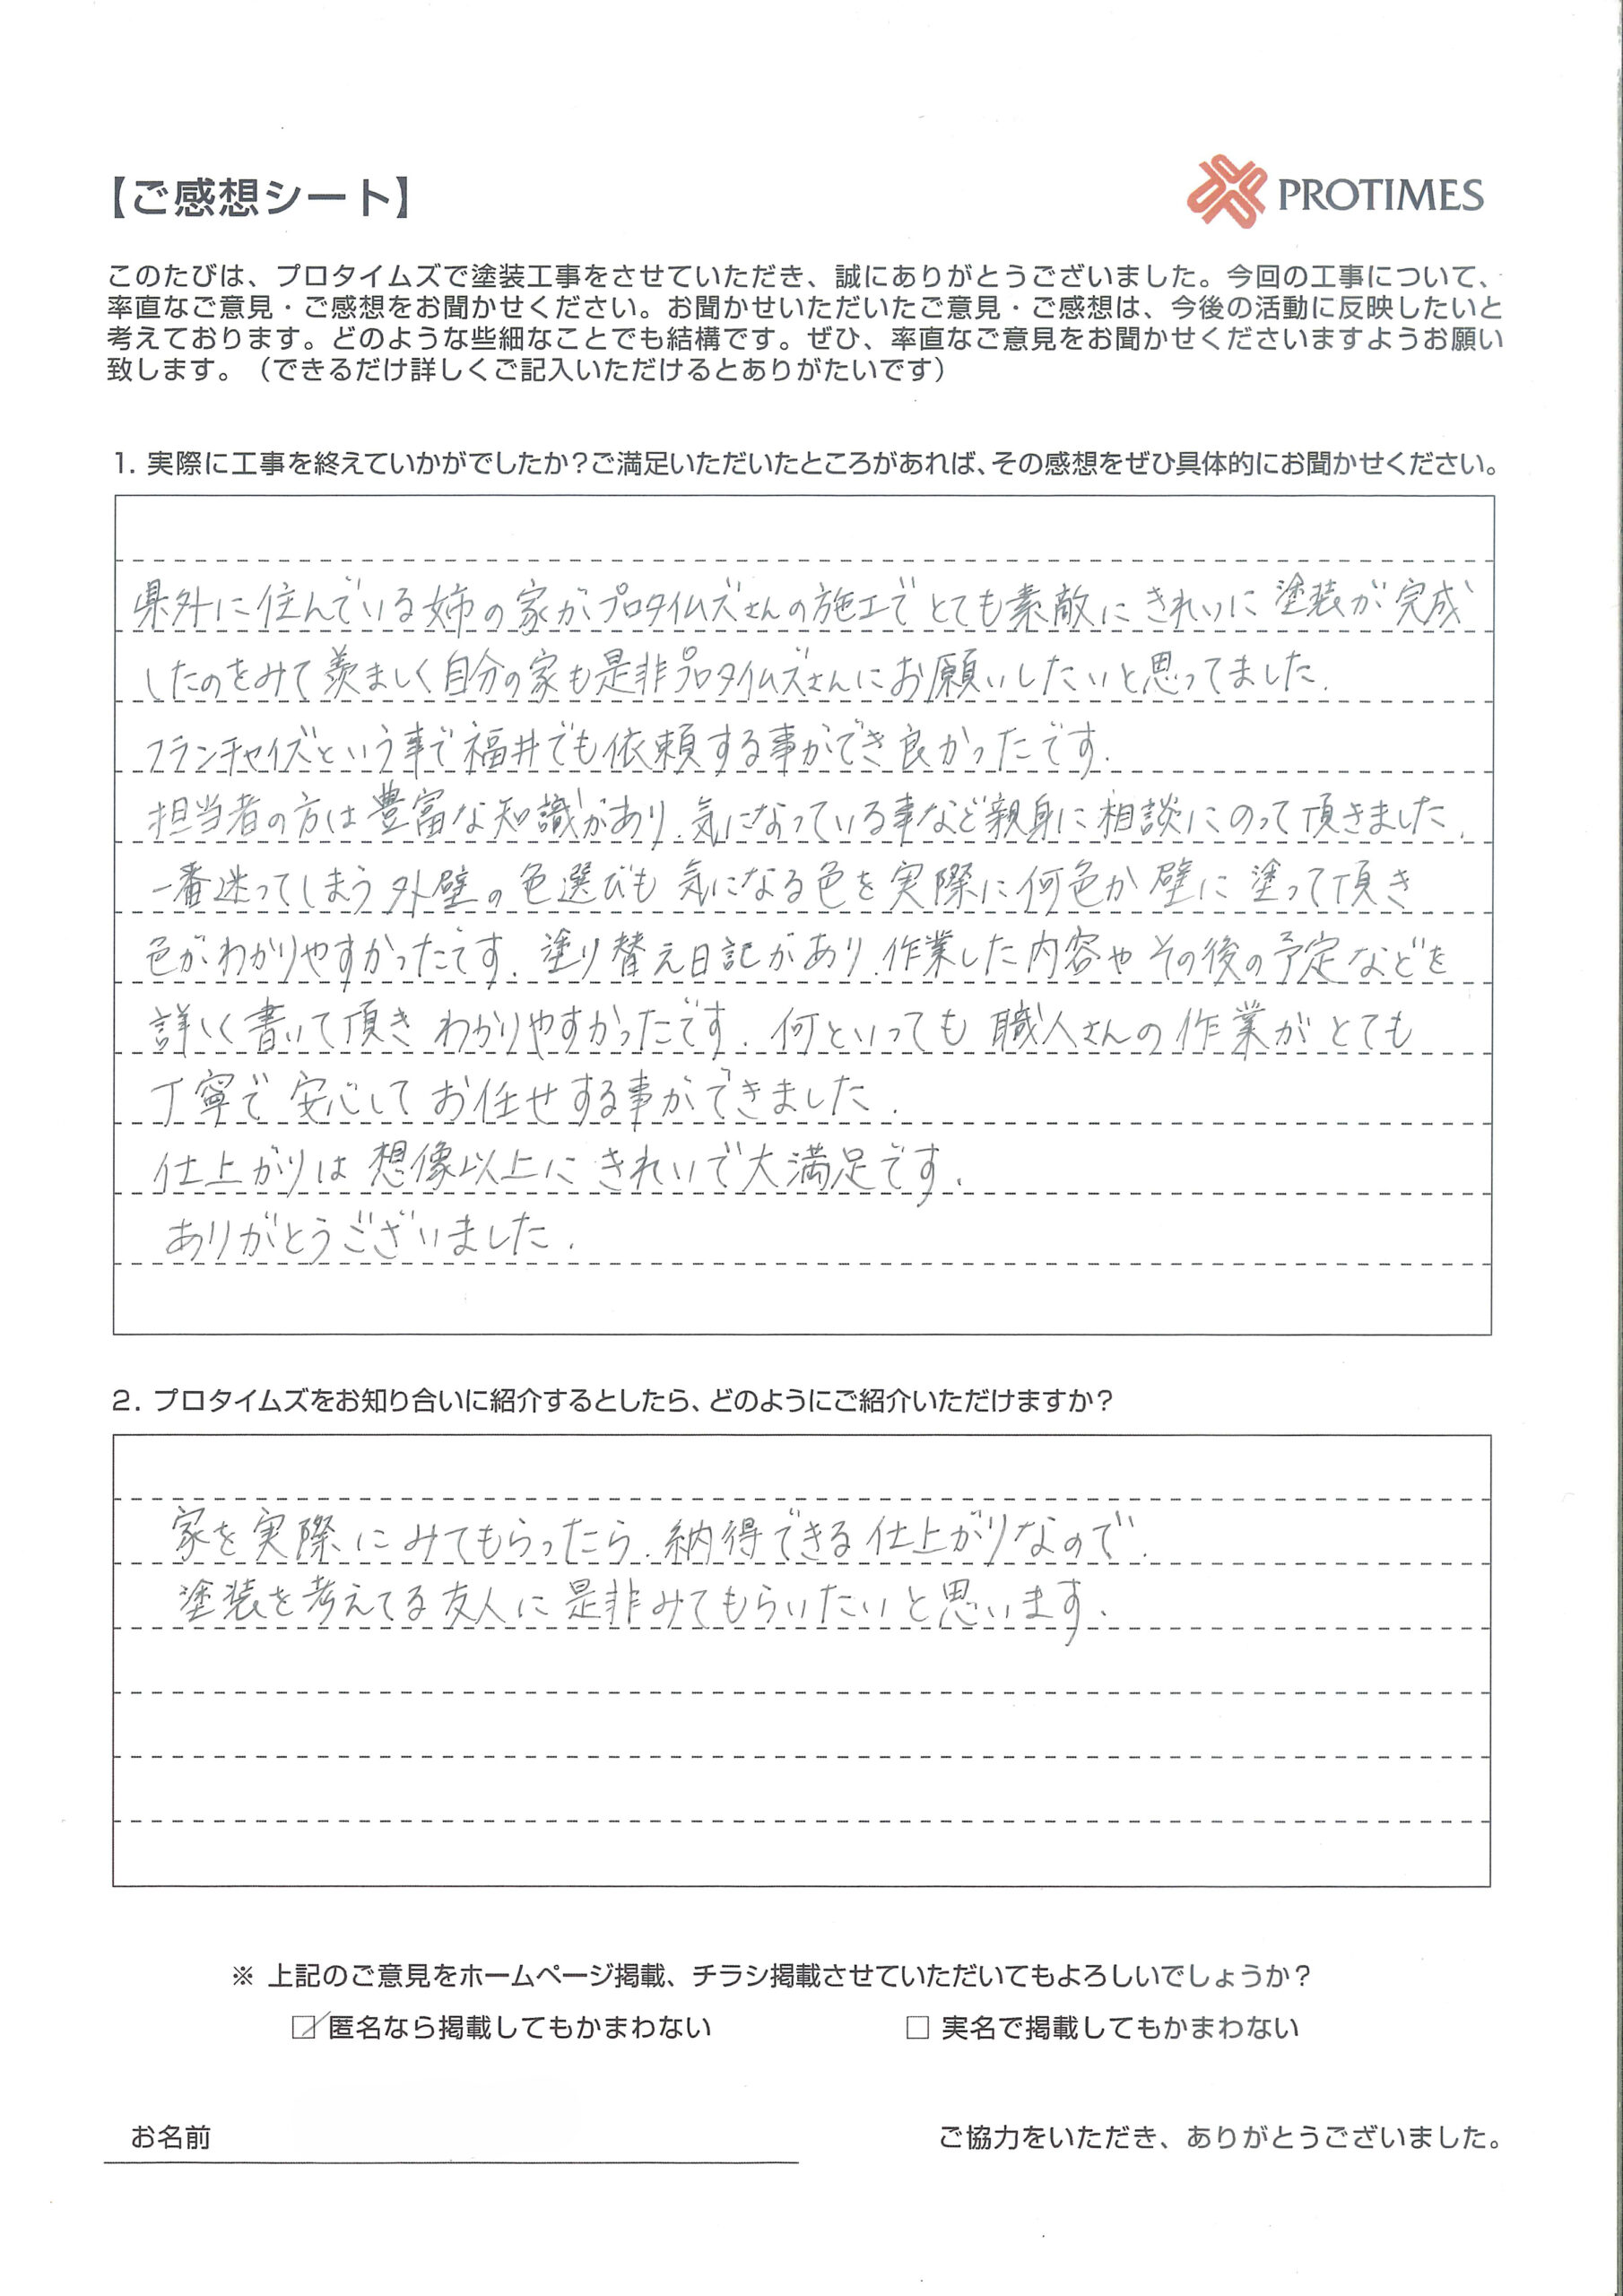 【ご感想シート】
PROTIMES
このたびは、プロタイムズで塗装工事をさせていただき、誠にありがとうございました。今回の工事について、
率直なご意見・ご感想をお聞かせください。お聞かせいただいたご意見・ご感想は、今後の活動に反映したいと
考えております。どのような些細なことでも結構です。ぜひ、率直なご意見をお聞かせくださいますようお願い
致します。（できるだけ詳しくご記入いただけるとありがたいです）
1. 実際に工事を終えていかがでしたか？ご満足いただいたところがあれば、その感想をぜひ具体的にお聞かせください。
県外に住んでいる姉の家がプロタイムズさんの施工でとても素敵にきれいに塗装が完成
したのをみて羨ましく自分の家も是非プロタイムズさんにお願いしたいと思ってました.
フランチャイズという事で福井でも依頼する事ができ良かったです.
担当者の方は豊富な知識があり.気になっている事など親身に相談にのって頂きました.
一番迷ってしまう外壁の色選びも気になる色を実際に何色か壁に塗って頂き
色がわかりやすかったです.塗り替え日記があり.作業した内容やその後の予定などを
詳しく書いて頂きわかりやすかったです.何といっても職人さんの作業がとても
丁寧で安心してお任せする事ができました.
仕上がりは想像以上にきれいで大満足です.
ありがとうございました.
2. プロタイムズをお知り合いに紹介するとしたら、どのようにご紹介いただけますか？
家を実際にみてもらったら.納得できる仕上がりなので.
塗装を考えてる友人に是非みてもらいたいと思います.
※ 上記のご意見をホームページ掲載、チラシ掲載させていただいてもよろしいでしょうか？
☑匿名なら掲載してもかまわない □ 実名で掲載してもかまわない
お名前 ご協力をいただき、ありがとうございました。